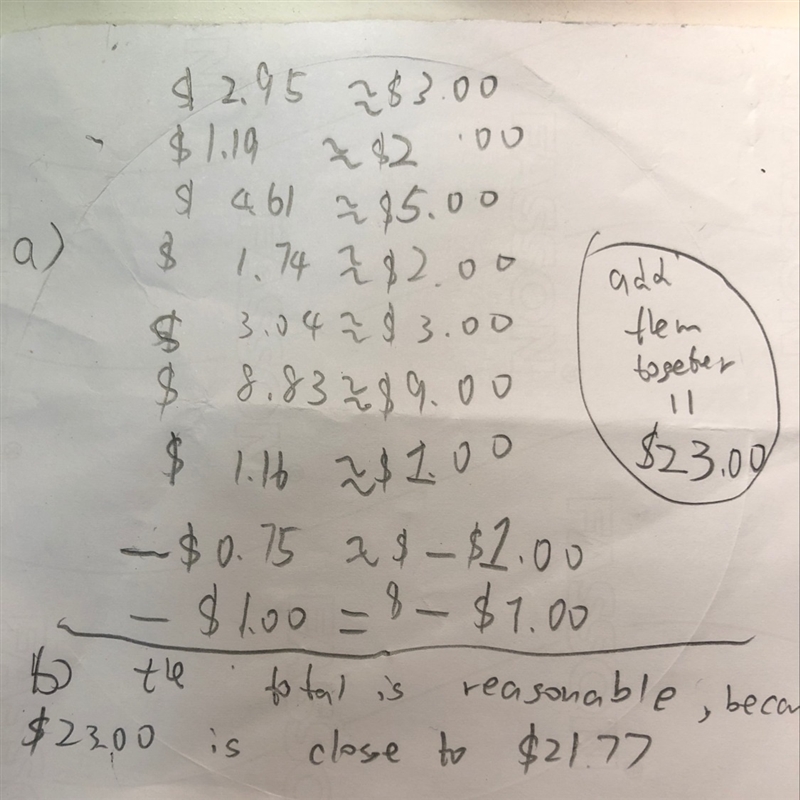 $ 2.95 ≈ $3.00
$1.19 ≈ $2.00
$ 4.61 ≈ $5.00
a)
$ 1.74 ≈ $2.00
$ 3.04 ≈ $3.00
$ 8.83 ≈ $9.00
$ 1.16 ≈ $1.00
— $0.75 ≈ $ - $1.00
— $1.00 = $ - $1.00
add
them
together
=
$23.00
b) the total is reasonable, becau
$23.00 is close to $21.77